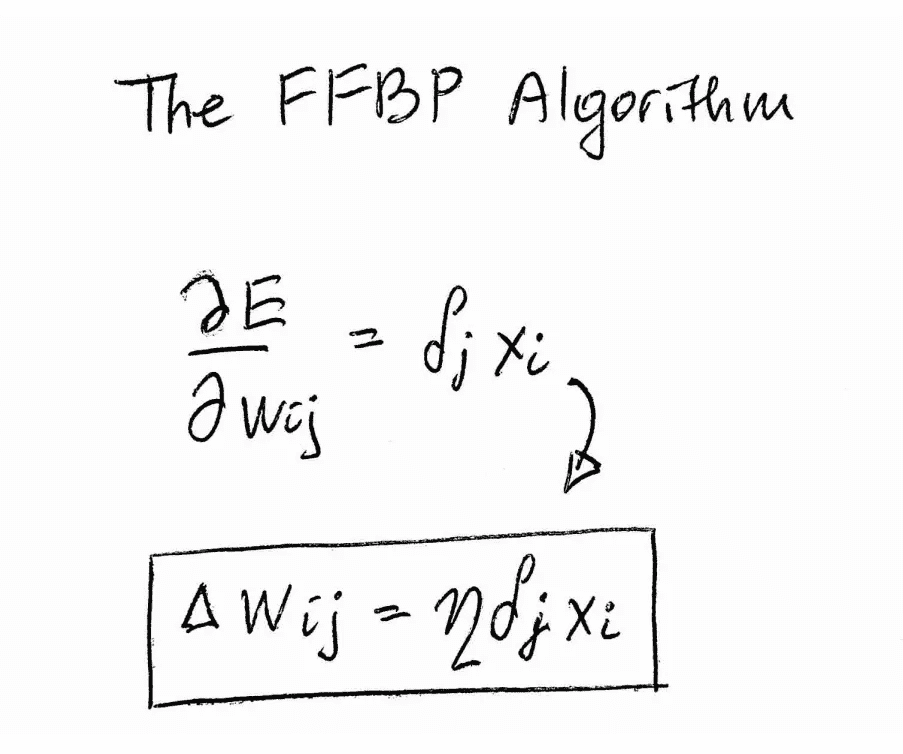 The FFBP Algorithm
∂E/∂wij = δj xi
Δwij = ηδj xi